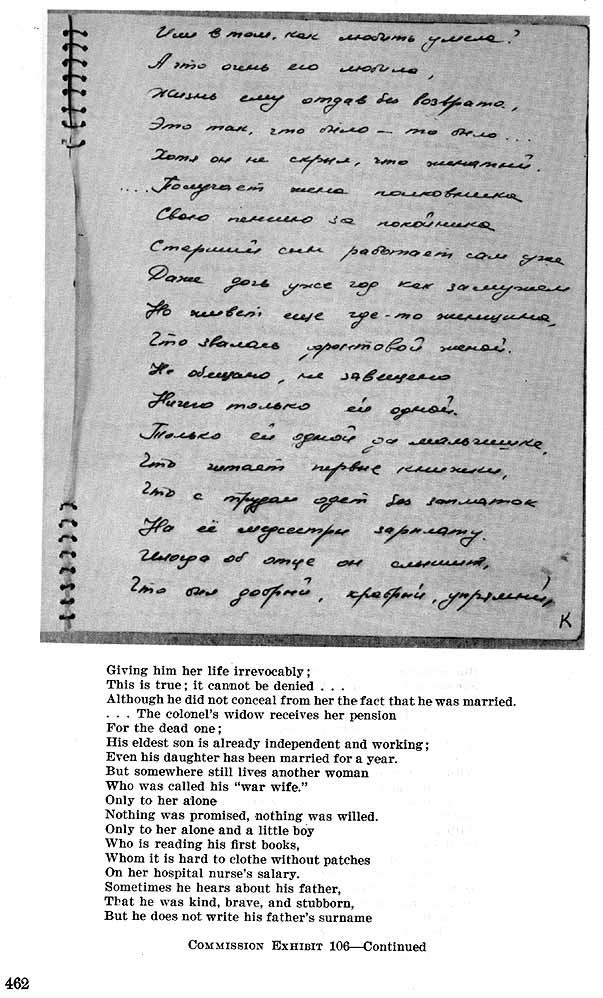 Или в том, как любить умела?
А это очень его любила,
Жизнь ему отдав без возврата,
Это так, что было — то было ...
Хотя он не скрыл, что женатый.
....Получает жена полковника
Свою пенсию за покойника
Старший сын работает сам уже
Даже дочь уже год как замужем
Но живет еще где-то женщина,
Что звалась фронтовой женой.
Не обещано, не завещено
Ничего только ей одной.
Только ей одной да мальчишке,
Что читает первые книжки,
Что с трудом одет без заплаток
На её медсестры зарплату.
Иногда об отце он слышит,
Что был добрый, храбрый, упрямый,
K
Giving him her life irrevocably;
This is true; it cannot be denied . . .
Although he did not conceal from her the fact that he was married.
. . . The colonel's widow receives her pension
For the dead one;
His eldest son is already independent and working;
Even his daughter has been married for a year.
But somewhere still lives another woman
Who was called his "war wife."
Only to her alone
Nothing was promised, nothing was willed.
Only to her alone and a little boy
Who is reading his first books,
Whom it is hard to clothe without patches
On her hospital nurse's salary.
Sometimes he hears about his father,
That he was kind, brave, and stubborn,
But he does not write his father's surname
COMMISSION EXHIBIT 106—Continued
462